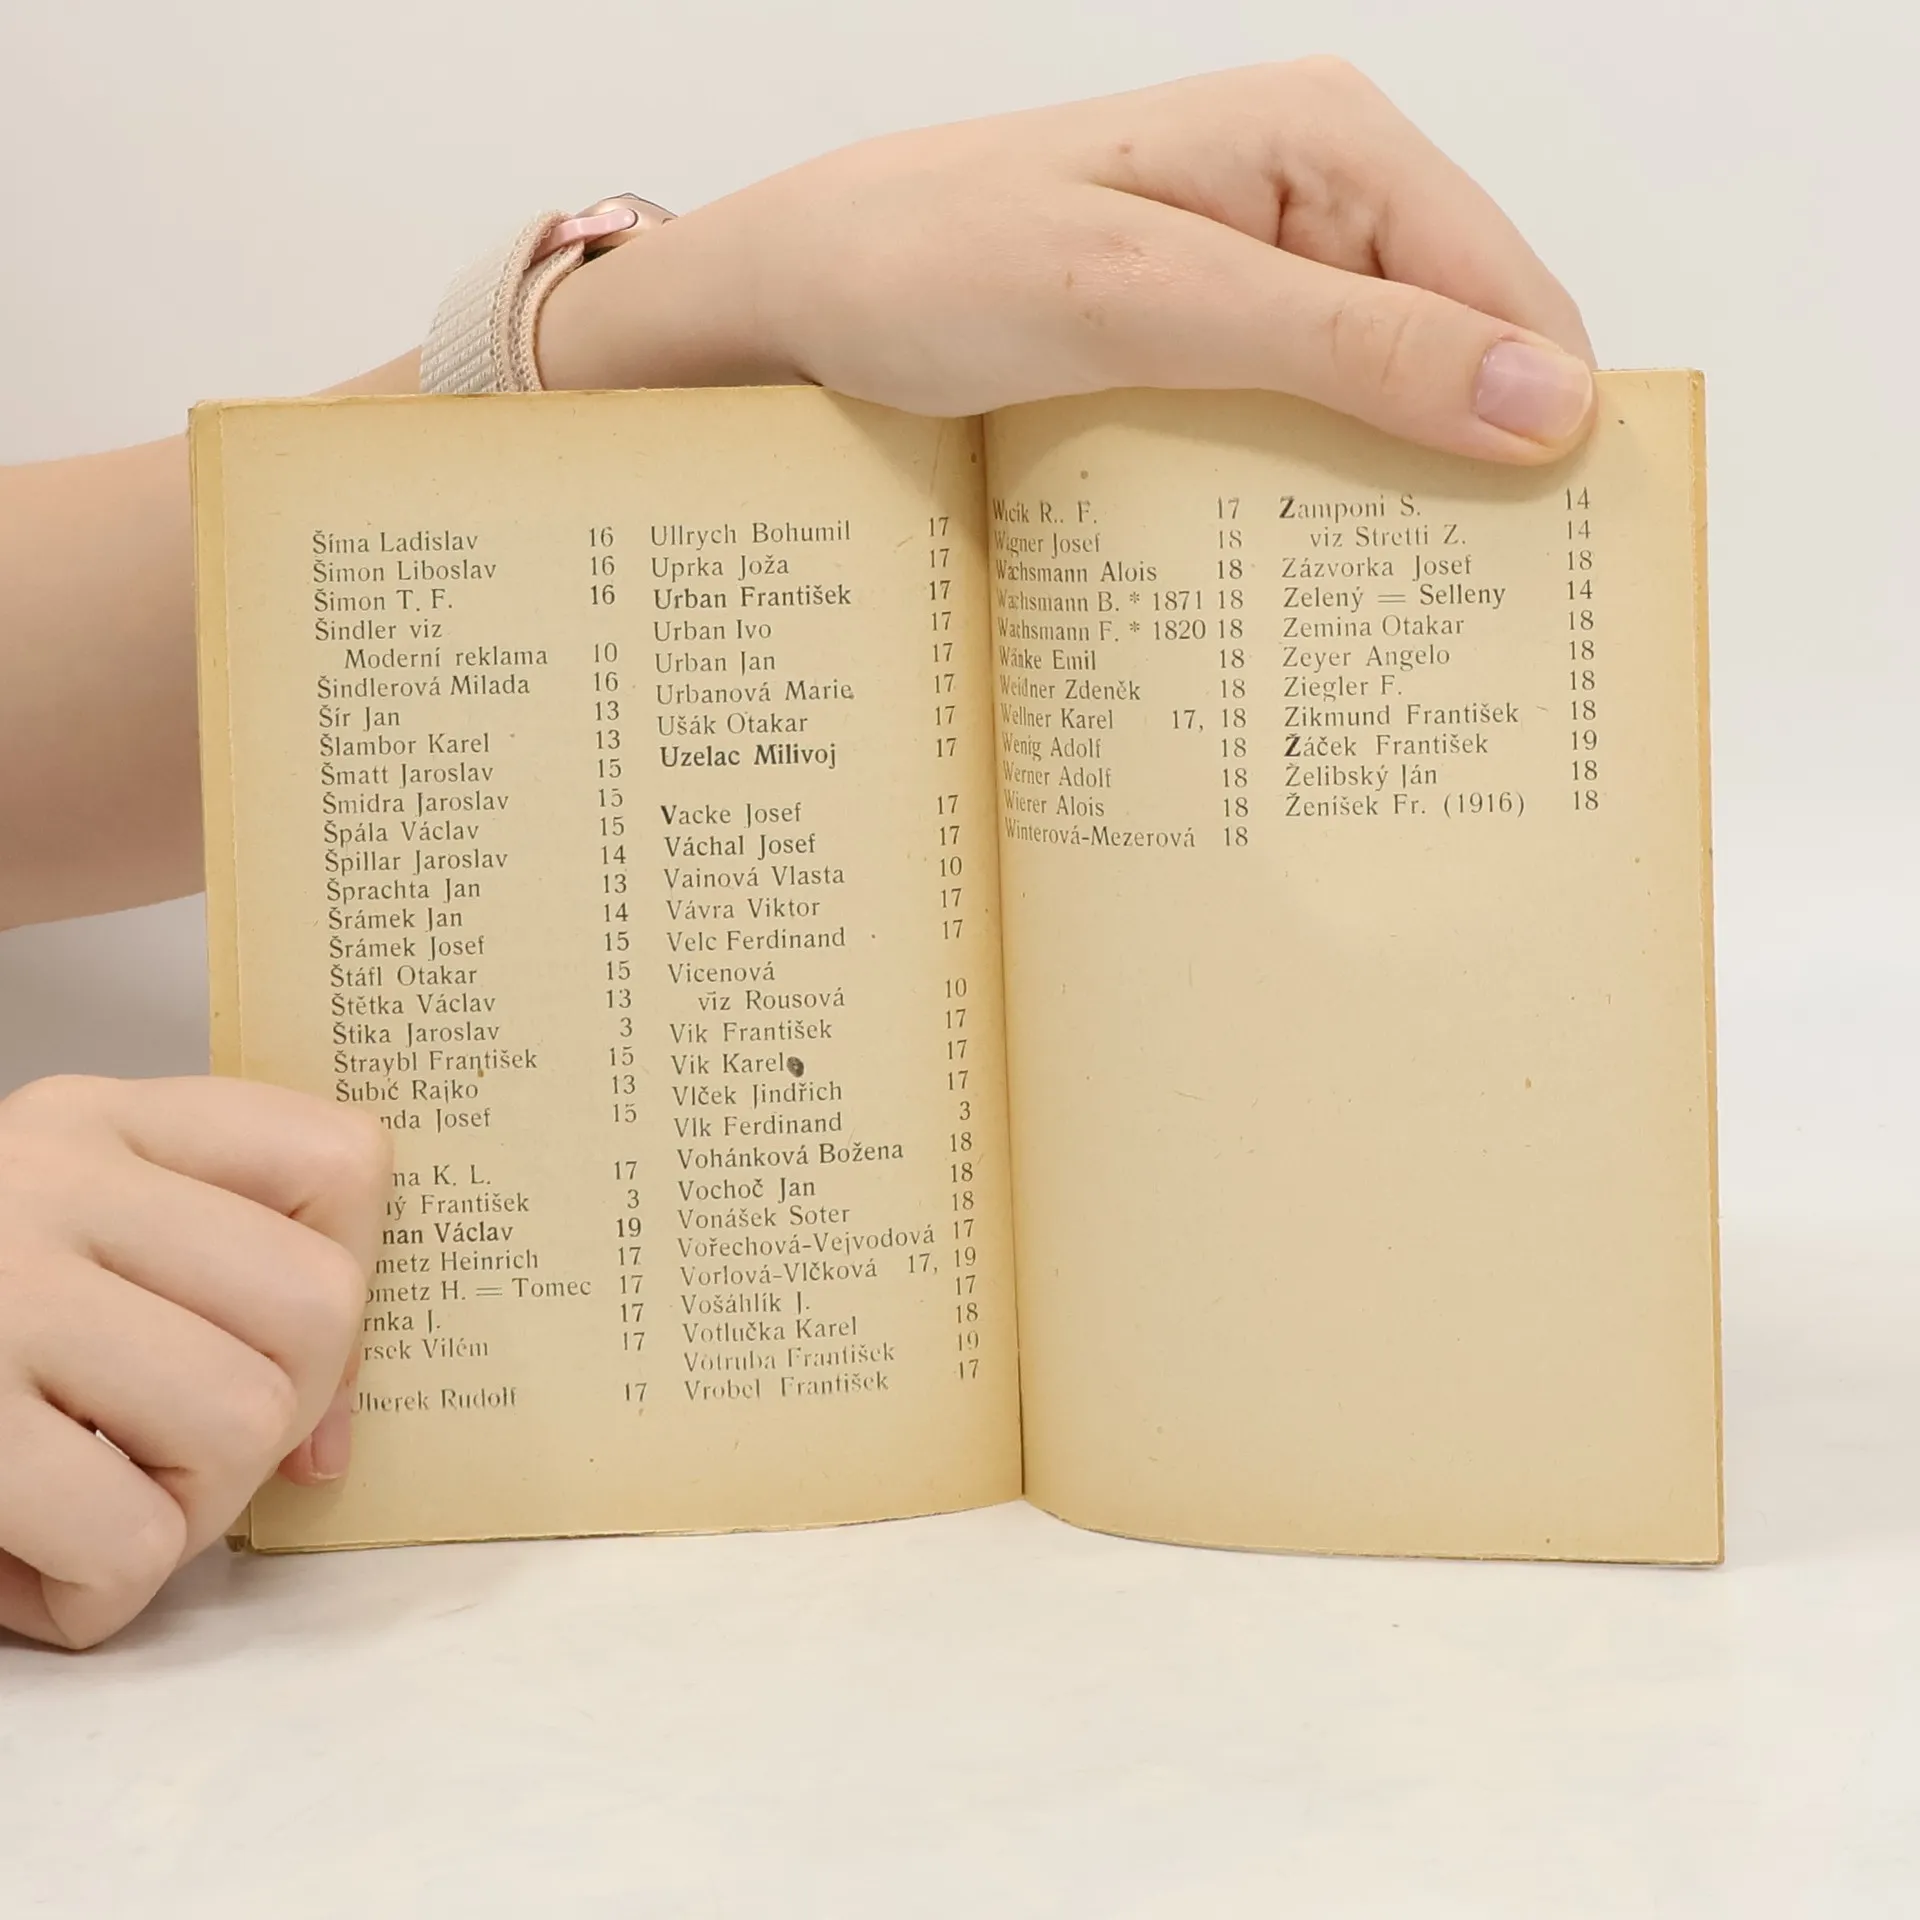 Šíma Ladislav 16
Šimon Liboslav 16
Šimon T. F. 16
Šindler viz
Moderní reklama 10
Šindlerová Milada 16
Šír Jan 13
Šlambor Karel 13
Šmatt Jaroslav 15
Šmidra Jaroslav 15
Špála Václav 15
Špillar Jaroslav 14
Šprachta Jan 13
Šrámek Jan 14
Šrámek Josef 15
Štáfl Otakar 15
Štětka Václav 13
Štika Jaroslav 3
Štraybl František 15
Šubić Rajko 13
Josef 15
K. L. 17
František 3
Václav 19
Heinrich 17
H. = Tomec 17
J. 17
Vilém 17
Uherek Rudolf 17
Ullrych Bohumil 17
Uprka Joža 17
Urban František 17
Urban Ivo 17
Urban Jan 17
Urbanová Marie 17
Ušák Otakar 17
Uzelac Milivoj 17
Vacke Josef 17
Váchal Josef 17
Vainová Vlasta 10
Vávra Viktor 17
Velc Ferdinand 17
Vicenová
viz Rousová 10
Vik František 17
Vik Karel 17
Vlček Jindřich 17
Vlk Ferdinand 3
Vohánková Božena 18
Vochoč Jan 18
Vonášek Soter 18
Vořechová-Vejvodová 17
Vorlová-Vlčková 17, 19
Vošáhlík J. 17
Votlučka Karel 18
Votruba František 19
Vrobel František 17
R. F. 17
Wagner Josef 18
Wachsmann Alois 18
Wachsmann B. * 1871 18
Wachsmann F. * 1820 18
Wänke Emil 18
Weidner Zdeněk 18
Wellner Karel 17, 18
Wenig Adolf 18
Werner Adolf 18
Wierer Alois 18
Winterová-Mezerová 18
Zamponi S. 14
viz Stretti Z. 14
Zázvorka Josef 18
Zelený = Selleny 14
Zemina Otakar 18
Zeyer Angelo 18
Ziegler F. 18
Zikmund František 18
Žáček František 19
Želibský Ján 18
Ženíšek Fr. (1916) 18